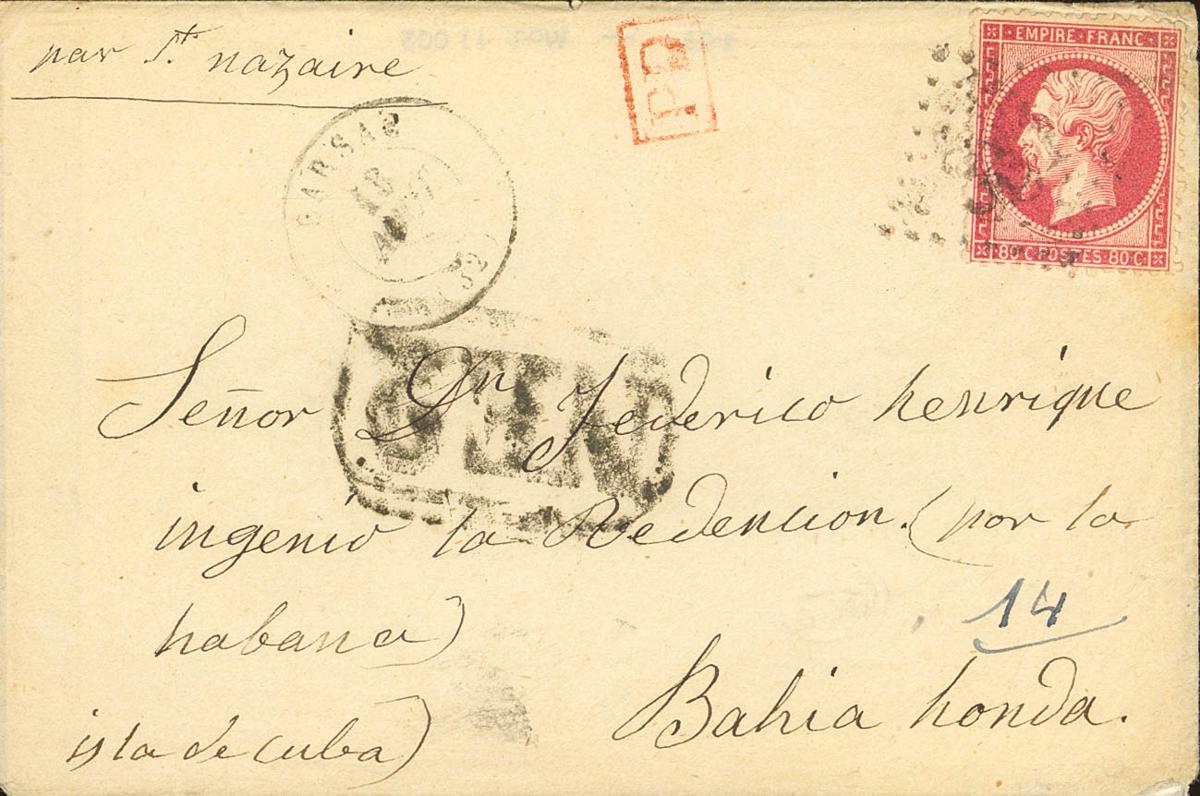 par St. nazaire
PD
EMPIRE FRANC
80 C POSTES 80 C
BARSAC
18
(32)
Señor Dn Federico henrique
ingenio la Redencion. (por la
habana)
14
Bahia honda.
isla de cuba)